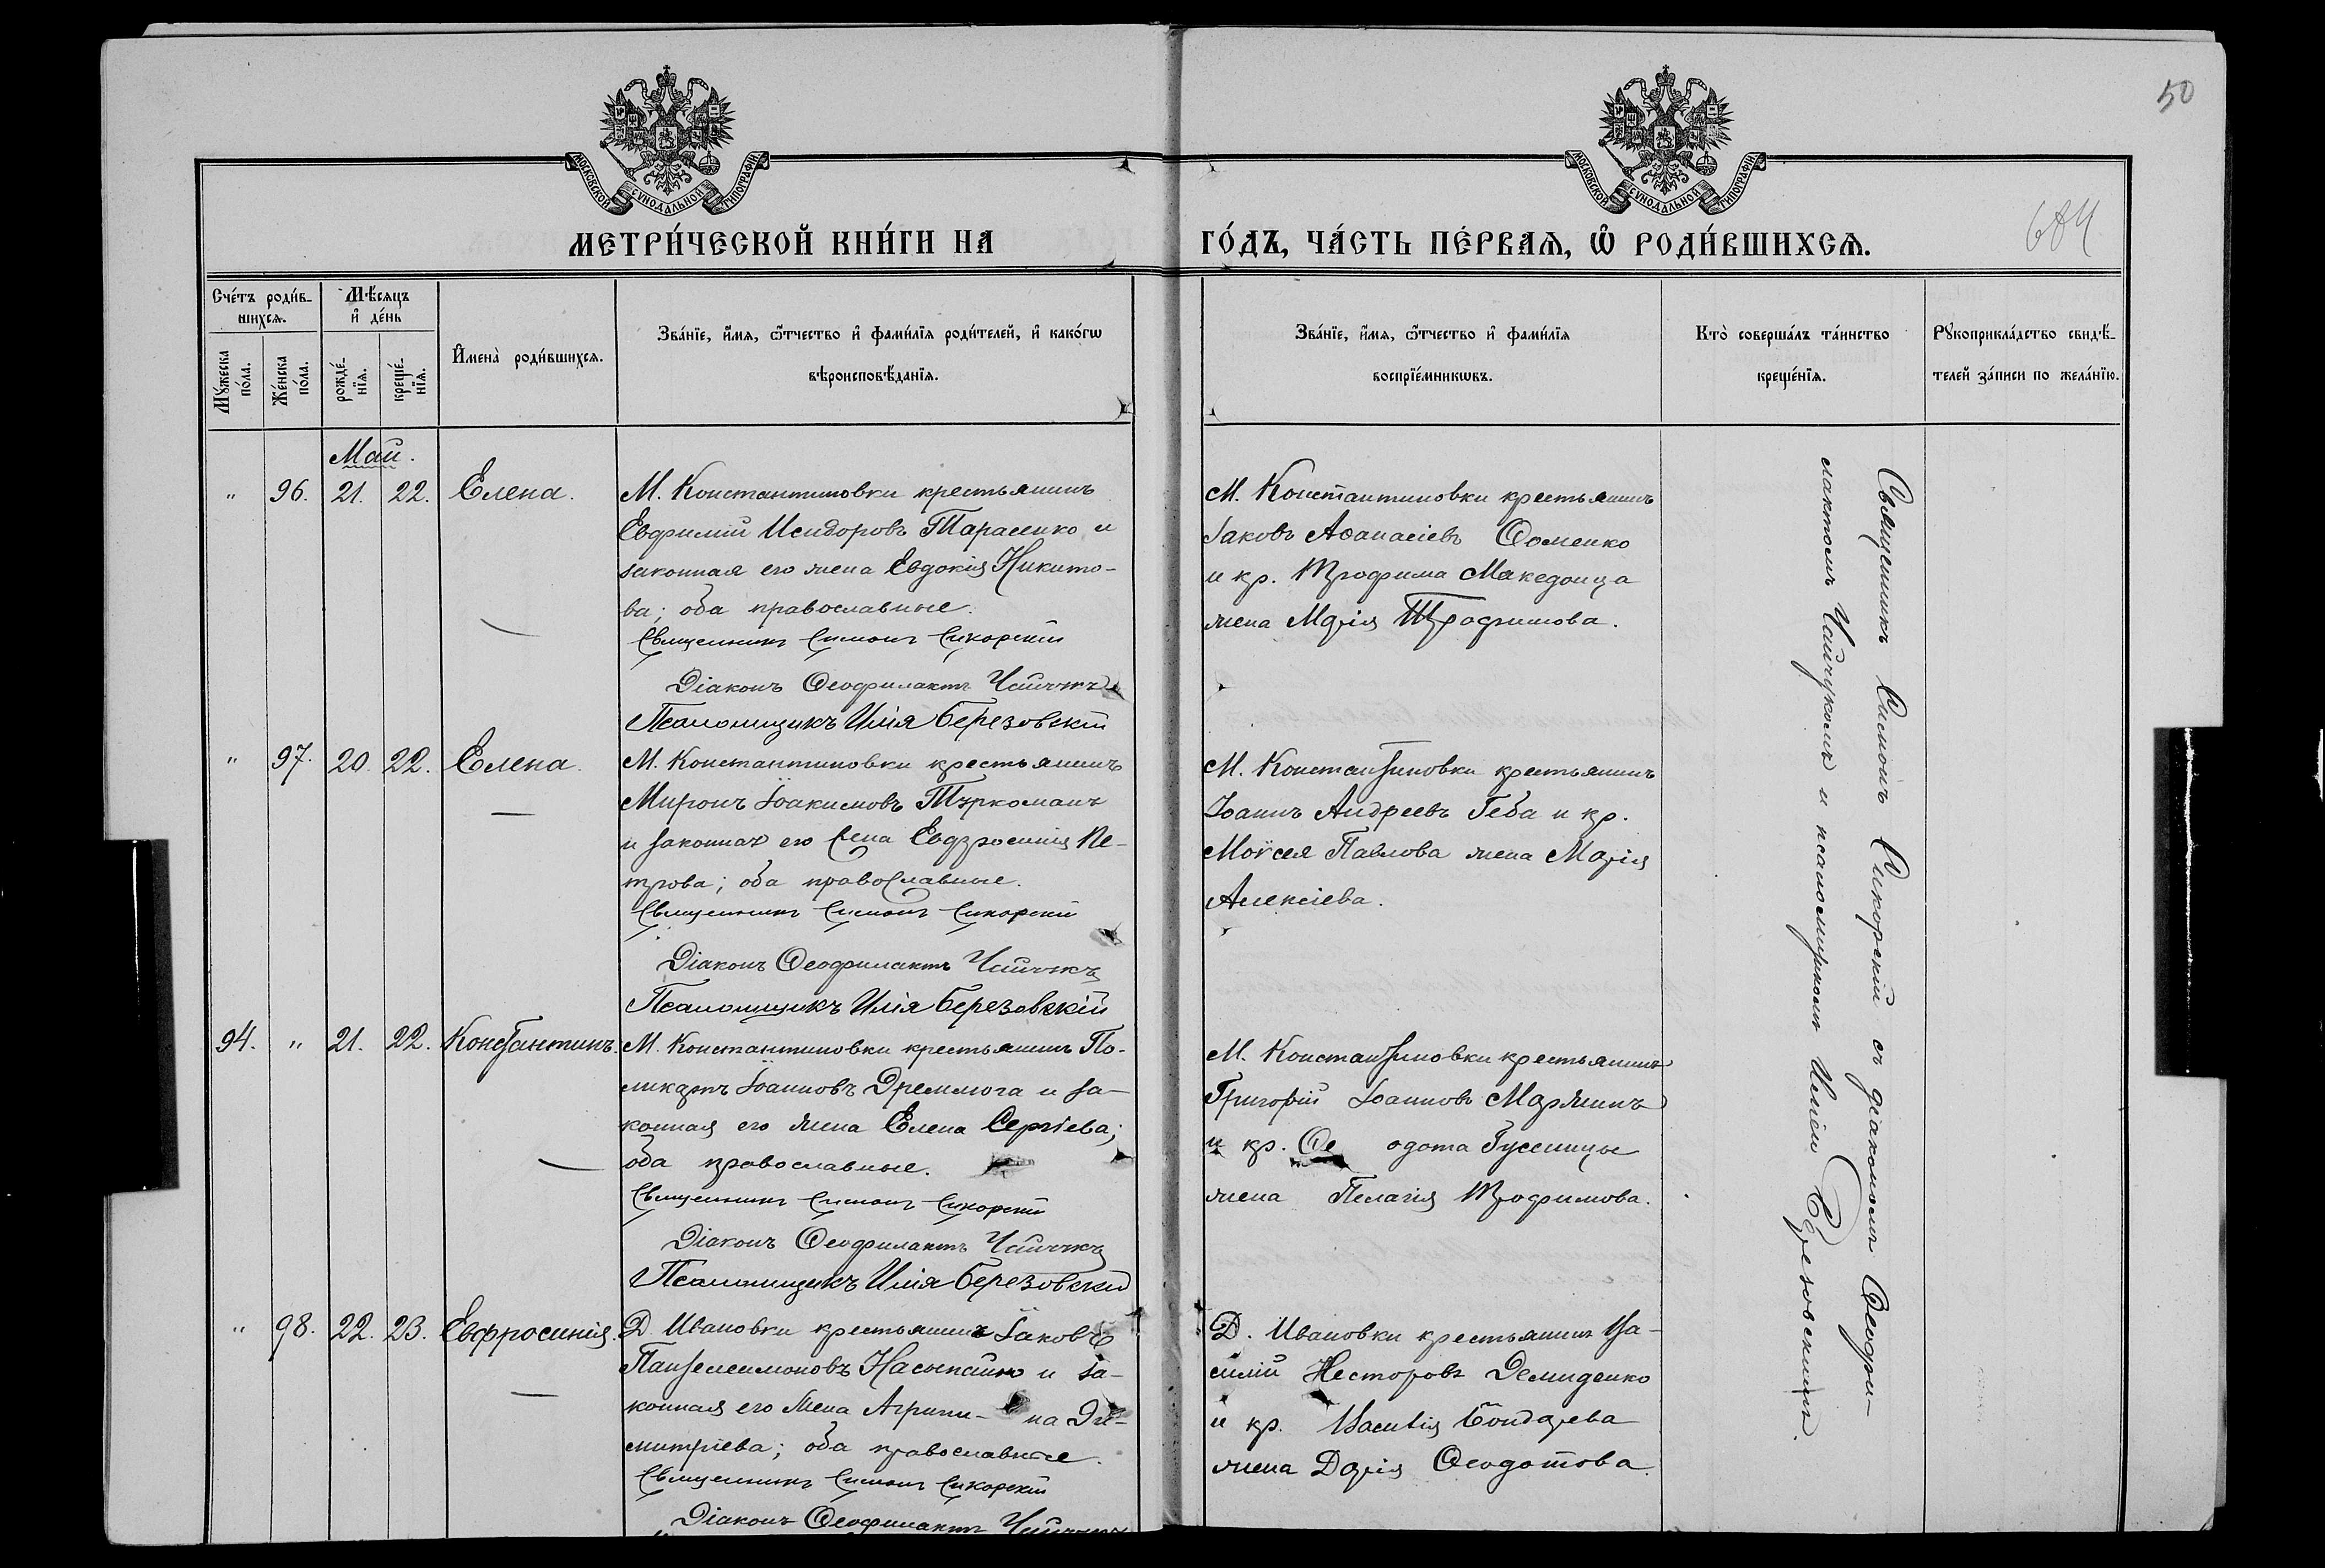 50
МОСКОВСКОЙ СѴНОДАЛЬНОЙ ТИПОГРАФІИ
МОСКОВСКОЙ СѴНОДАЛЬНОЙ ТИПОГРАФІИ
МЕТРИ́ЧЕСКОЙ КНИ́ГИ НА ГО́ДЪ, ЧА́СТЬ ПЕ́РВАѦ, Ѡ҆ РОДИ́ВШИХСѦ.
684
Сче́тъ роди́в-
шихсѧ.
Мꙋ́жеска по́ла.
Же́нска по́ла.
Мѣ́сѧцъ
и҆ де́нь
рожде́-
нїѧ.
креще́-
нїѧ.
И҆мена̀ роди́вшихсѧ.
Зва́нїе, и҆́мѧ, ѻ҆́тчество и҆ фами́лїѧ роди́телей, и҆ како́гѡ
вѣроисповѣ́данїѧ.
Зва́нїе, и҆́мѧ, ѻ҆́тчество и҆ фами́лїѧ
воспрїе́мникѡвъ.
Кто̀ соверша́лъ та́инство
креще́нїѧ.
Рꙋкоприкла́дство свидѣ́-
телей за́писи по жела́нїю.
Май.
" 96. 21. 22. Елена.
М. Константиновки крестьянинъ
Евфимій Исидоровъ Тарасенко и
законная его жена Евдокія Никито-
ва; оба православные.
Священникъ Симонъ Сикорскій
Діаконъ Ѳеофилактъ Чайчукъ
Псаломщикъ Илія Березовскій
М. Константиновки крестьянинъ
Іаковъ Аѳанасіевъ Ѳоменко
и кр. Трофима Македонца
жена Марія Трофимова.
" 97. 20. 22. Елена.
М. Константиновки крестьянинъ
Миронъ Іоакимовъ Туркоманъ
и законная его жена Евфросинія Пе-
трова; оба православные.
Священникъ Симонъ Сикорскій
Діаконъ Ѳеофилактъ Чайчукъ
Псаломщикъ Илія Березовскій
М. Константиновки крестьянинъ
Іоаннъ Андреевъ Геба и кр.
Моѵсея Павлова жена Марія
Алексіева.
94. " 21. 22. Константинъ.
М. Константиновки крестьянинъ По-
ликарпъ Іоанновъ Дремлюга и за-
конная его жена Елена Сергіева;
оба православные.
Священникъ Симонъ Сикорскій
Діаконъ Ѳеофилактъ Чайчукъ
Псаломщикъ Илія Березовскій
М. Константиновки крестьянинъ
Григорій Іоанновъ Маржинъ
и кр. Ѳе одота Гусеницы
жена Пелагія Трофимова.
" 98. 22. 23. Евфросинія.
Д. Ивановки крестьянинъ Іаковъ
Пантелеимоновъ Насыпайко и за-
конная его жена Агрипи- на Ди-
митріева; оба православные.
Священникъ Симонъ Сикорскій
Діаконъ Ѳеофилактъ Чайчукъ
Д. Ивановки крестьянинъ Ва-
силій Несторовъ Демиденко
и кр. Василія Бондарева
жена Дарія Ѳеодотова.
Священникъ Симонъ Сикорскій съ діакономъ Ѳеофи-
лактомъ Чайчукомъ и псаломщикомъ Иліею Березовскимъ.